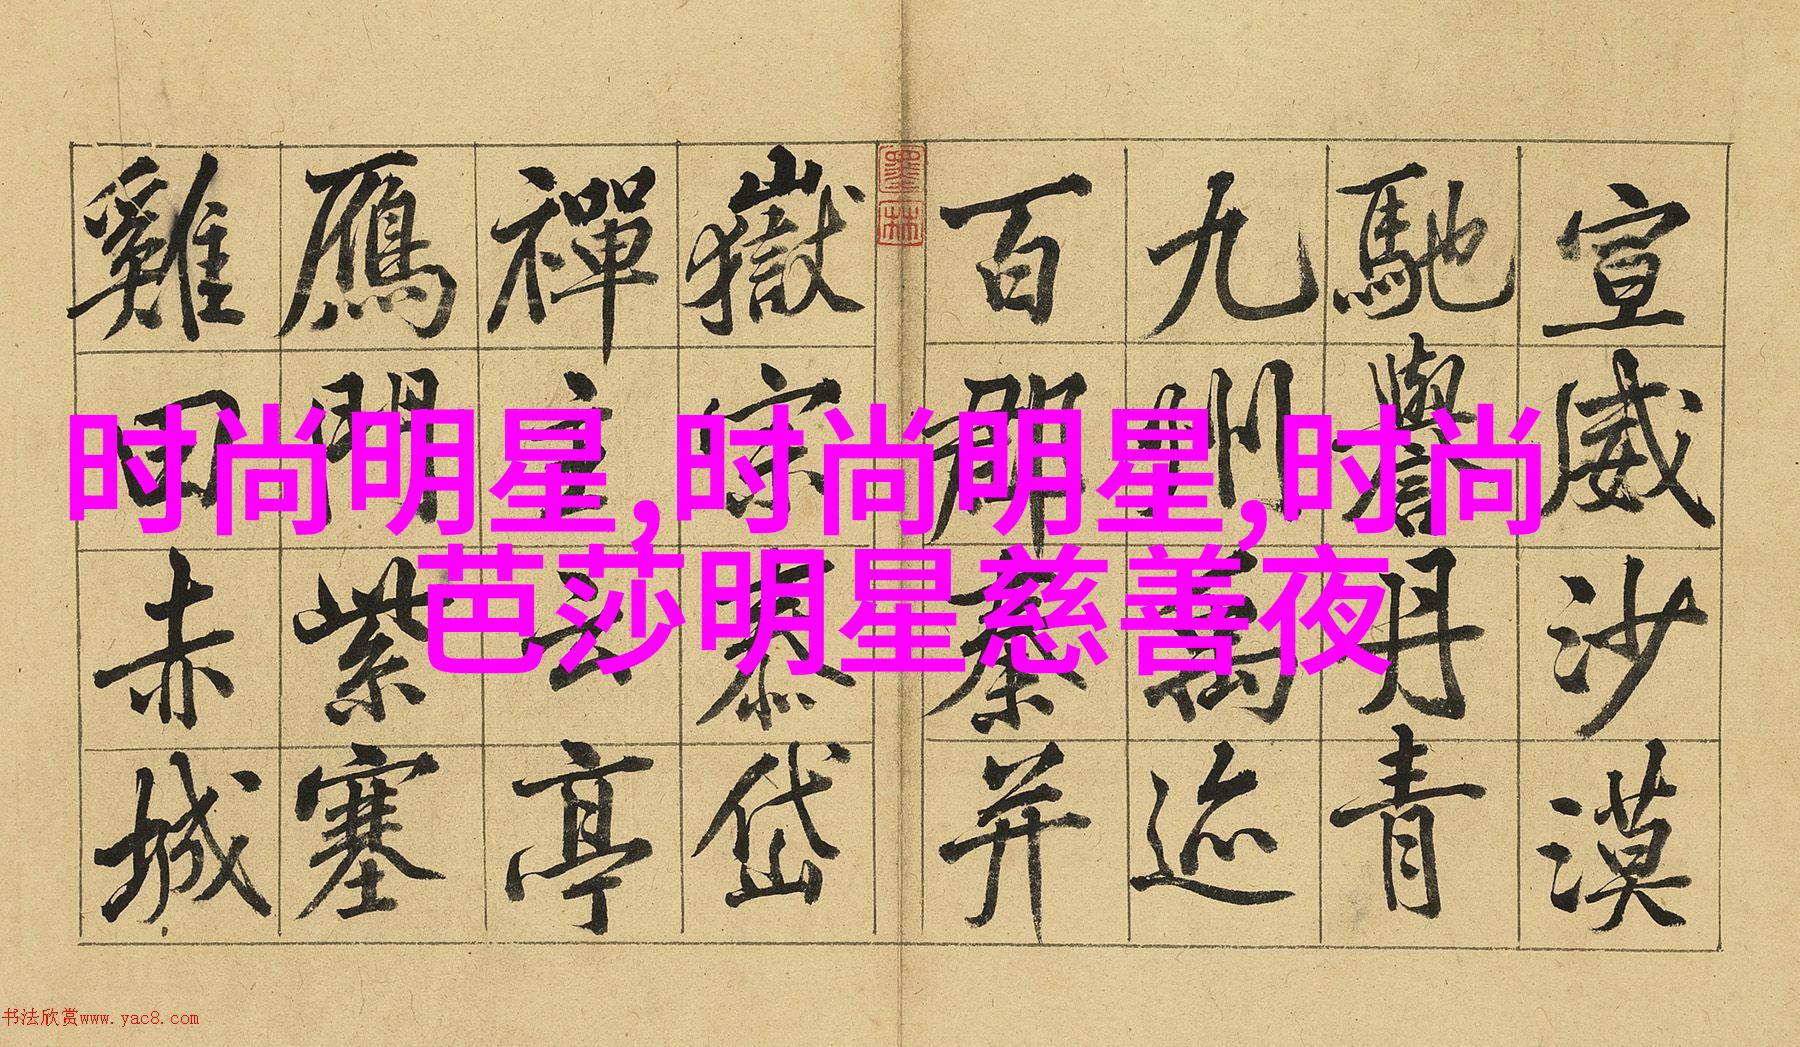 宣威沙漠
馳譽丹青
九州禹迹
百郡秦并
墨林
嶽宗泰岱
禪主云亭
鴈門紫塞
雞田赤城
时尚明星,时尚明星,时尚
芭莎明星慈善夜
书法欣赏www.yac8.com